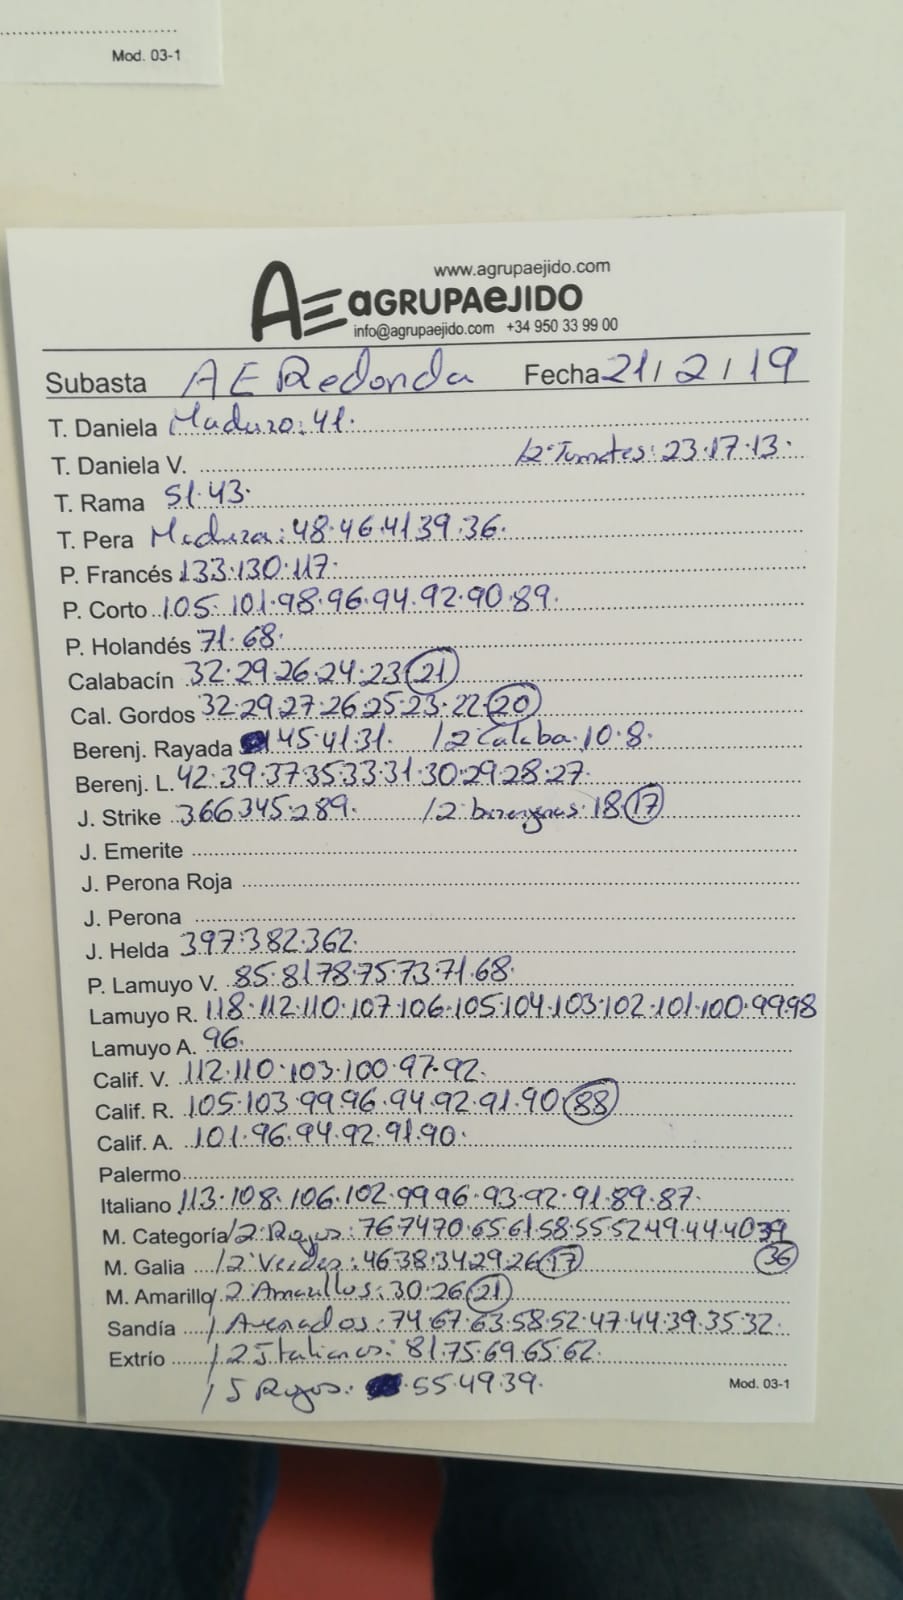 Mod. 03-1
www.agrupaejido.com
AE aGRUPAeJIDO
info@agrupaejido.com +34 950 33 99 00
Subasta AE Redonda Fecha 21/2/19
T. Daniela Maduro: 41.
T. Daniela V. /2ª Tomates: 23.17.13.
T. Rama 51.43.
T. Pera Madura: 48.46.41.39.36.
P. Francés 133.130.117.
P. Corto 105.101.98.96.94.92.90.89.
P. Holandés 71.68.
Calabacín 32.29.26.24.23.21
Cal. Gordos 32.29.27.26.25.23.22.20
Berenj. Rayada 45.41.31. /2 Calaba. 10.8.
Berenj. L. 42.39.37.35.33.31.30.29.28.27.
J. Strike 366.345.289. /2 berenjenas: 18.17
J. Emerite
J. Perona Roja
J. Perona
J. Helda 397.382.362.
P. Lamuyo V. 85.81.78.75.73.71.68.
Lamuyo R. 118.112.110.107.106.105.104.103.102.101.100.99.98
Lamuyo A. 96.
Calif. V. 112.110.103.100.97.92.
Calif. R. 105.103.99.96.94.92.91.90.88
Calif. A. 101.96.94.92.91.90.
Palermo
Italiano 113.108.106.102.99.96.93.92.91.89.87.
M. Categoría /2ª Rojos: 76.74.70.65.61.58.55.52.49.44.40.39
M. Galia /2ª Verdes: 46.38.34.29.26.17 36
M. Amarillo /2 Amarillos: 30.26.21
Sandía / Asenados: 74.67.63.58.52.47.44.39.35.32.
Extrío /2 Italianos: 81.75.69.65.62.
/5 Rojos: 55.49.39.
Mod. 03-1